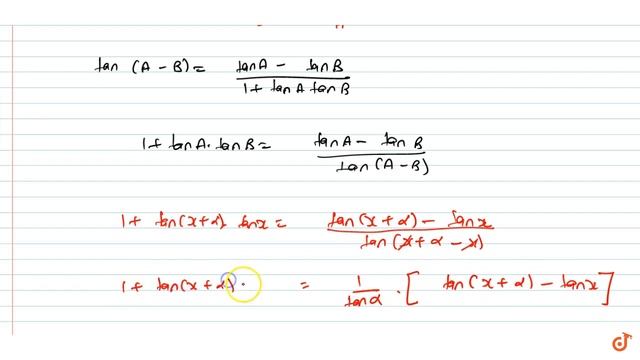 tan (A - B) = (tan A - tan B) / (1 + tan A tan B)
1 + tan A · tan B = (tan A - tan B) / (tan (A - B))
1 + tan(x + α) tan x = (tan (x + α) - tan x) / (tan (x + α - x))
1 + tan(x + α) · = 1 / tan α · [ tan (x + α) - tan x ]